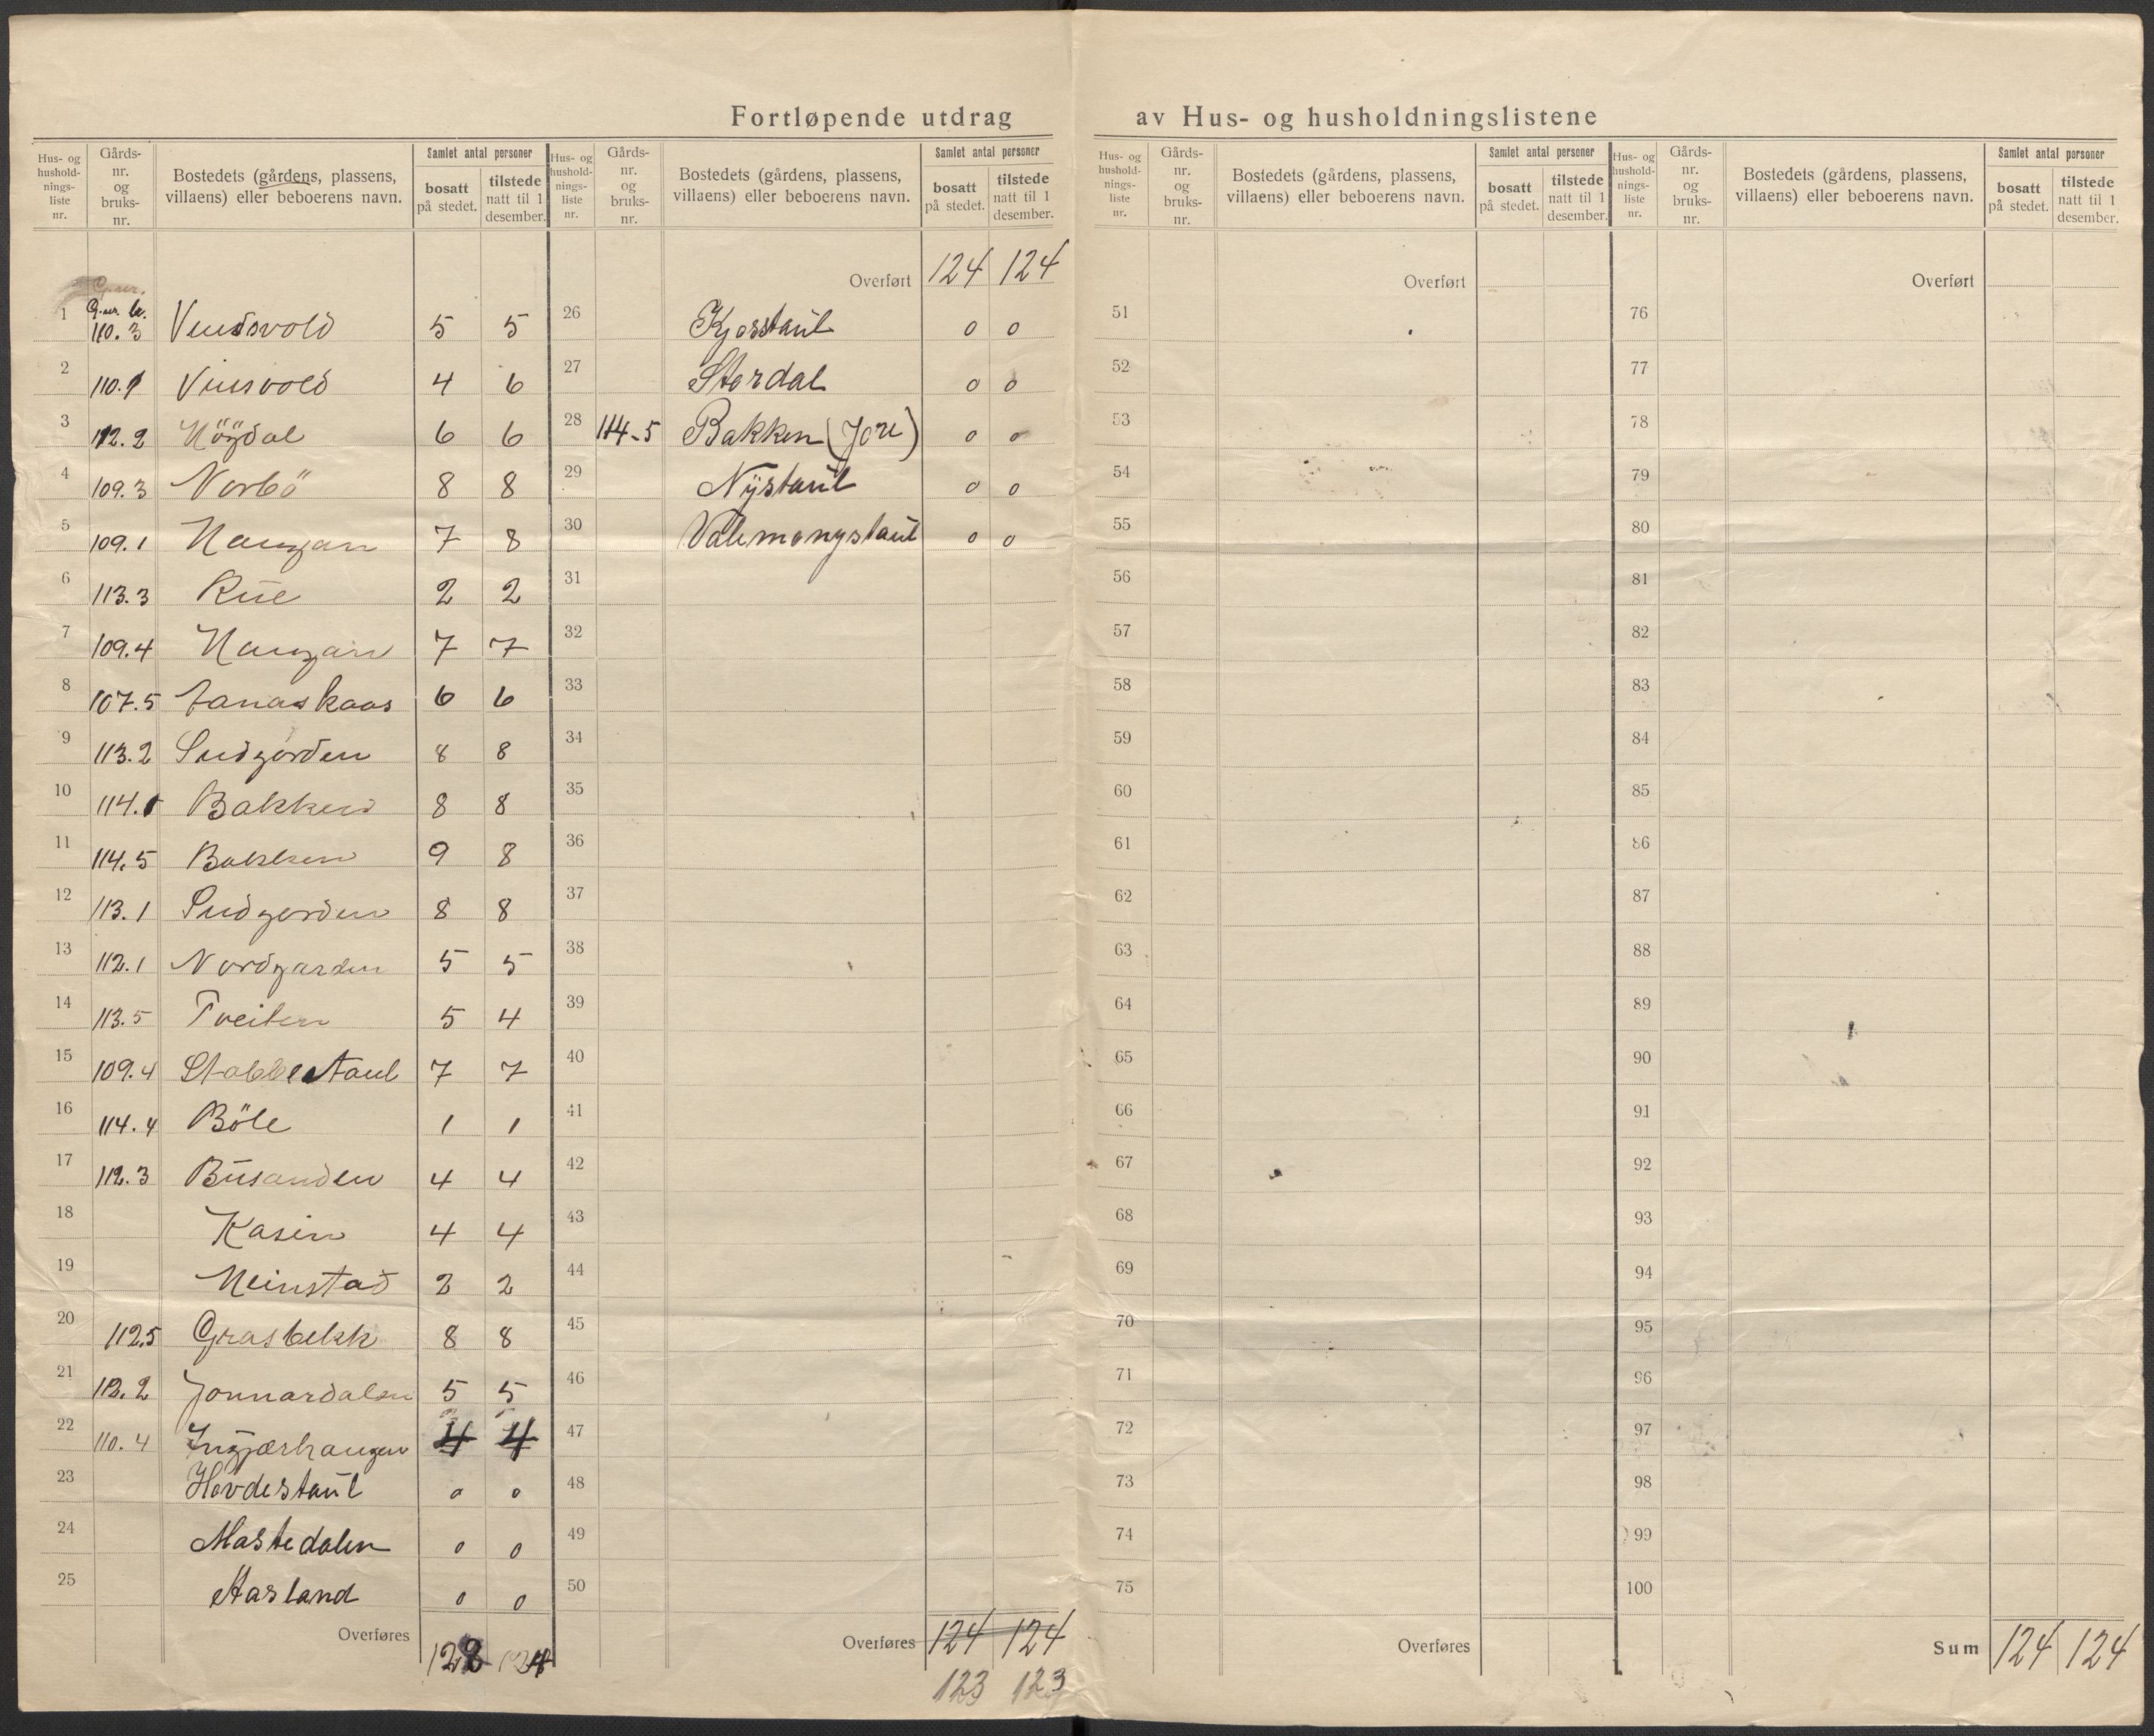 Fortløpende utdrag av Hus- og husholdningslistene
Hus- og hushold- nings- liste nr.
Gårds- nr. og bruks- nr.
Bostedets (gårdens, plassens, villaens) eller beboerens navn.
Samlet antal personer
bosatt på stedet.
tilstede natt til 1 desember.
Hus- og hushold- nings- liste nr.
Gårds- nr. og bruks- nr.
Bostedets (gårdens, plassens, villaens) eller beboerens navn.
Samlet antal personer
bosatt på stedet.
tilstede natt til 1 desember.
Hus- og hushold- nings- liste nr.
Gårds- nr. og bruks- nr.
Bostedets (gårdens, plassens, villaens) eller beboerens navn.
Samlet antal personer
bosatt på stedet.
tilstede natt til 1 desember.
Hus- og hushold- nings- liste nr.
Gårds- nr. og bruks- nr.
Bostedets (gårdens, plassens, villaens) eller beboerens navn.
Samlet antal personer
bosatt på stedet.
tilstede natt til 1 desember.
G.nr.
G.nr. br.
1 110.3 5 5
2 110.1 4 6
3 112.2 6 6
4 109.3 Norbö 8 8
5 109.1 Haugan 7 8
6 113.3 Rue 2 2
7 109.4 Haugan 7 7
8 107.5 6 6
9 113.2 Sudgorden 8 8
10 114.1 Bakken 8 8
11 114.5 Bakken 9 8
12 113.1 Sudgorden 8 8
13 112.1 Nordgarden 5 5
14 113.5 Tveiten 5 4
15 109.4 Stabbestaul 7 7
16 114.4 Böle 1 1
17 112.3 Busanden 4 4
18 Kasin 4 4
19 Meinstad 2 2
20 112.5 Grasbekk 8 8
21 2 Jonnardalen 5 5
22 110.4 Ingjærhaugen 4 4
23 Hovdestaul 0 0
24 Mastedalen 0 0
25 Aasland 0 0
Overføres
Overført 124 124
26 Kjosstaul 0 0
27 Stordal 0 0
28 114-5 Bakken (Jore) 0 0
29 Nystaul 0 0
30 0 0
31
32
33
34
35
36
37
38
39
40
41
42
43
44
45
46
47
48
49
50
Overføres 124 124
123 123
Overført
51
52
53
54
55
56
57
58
59
60
61
62
63
64
65
66
67
68
69
70
71
72
73
74
75
Overføres
Overført
76
77
78
79
80
81
82
83
84
85
86
87
88
89
90
91
92
93
94
95
96
97
98
99
100
Sum 124 124